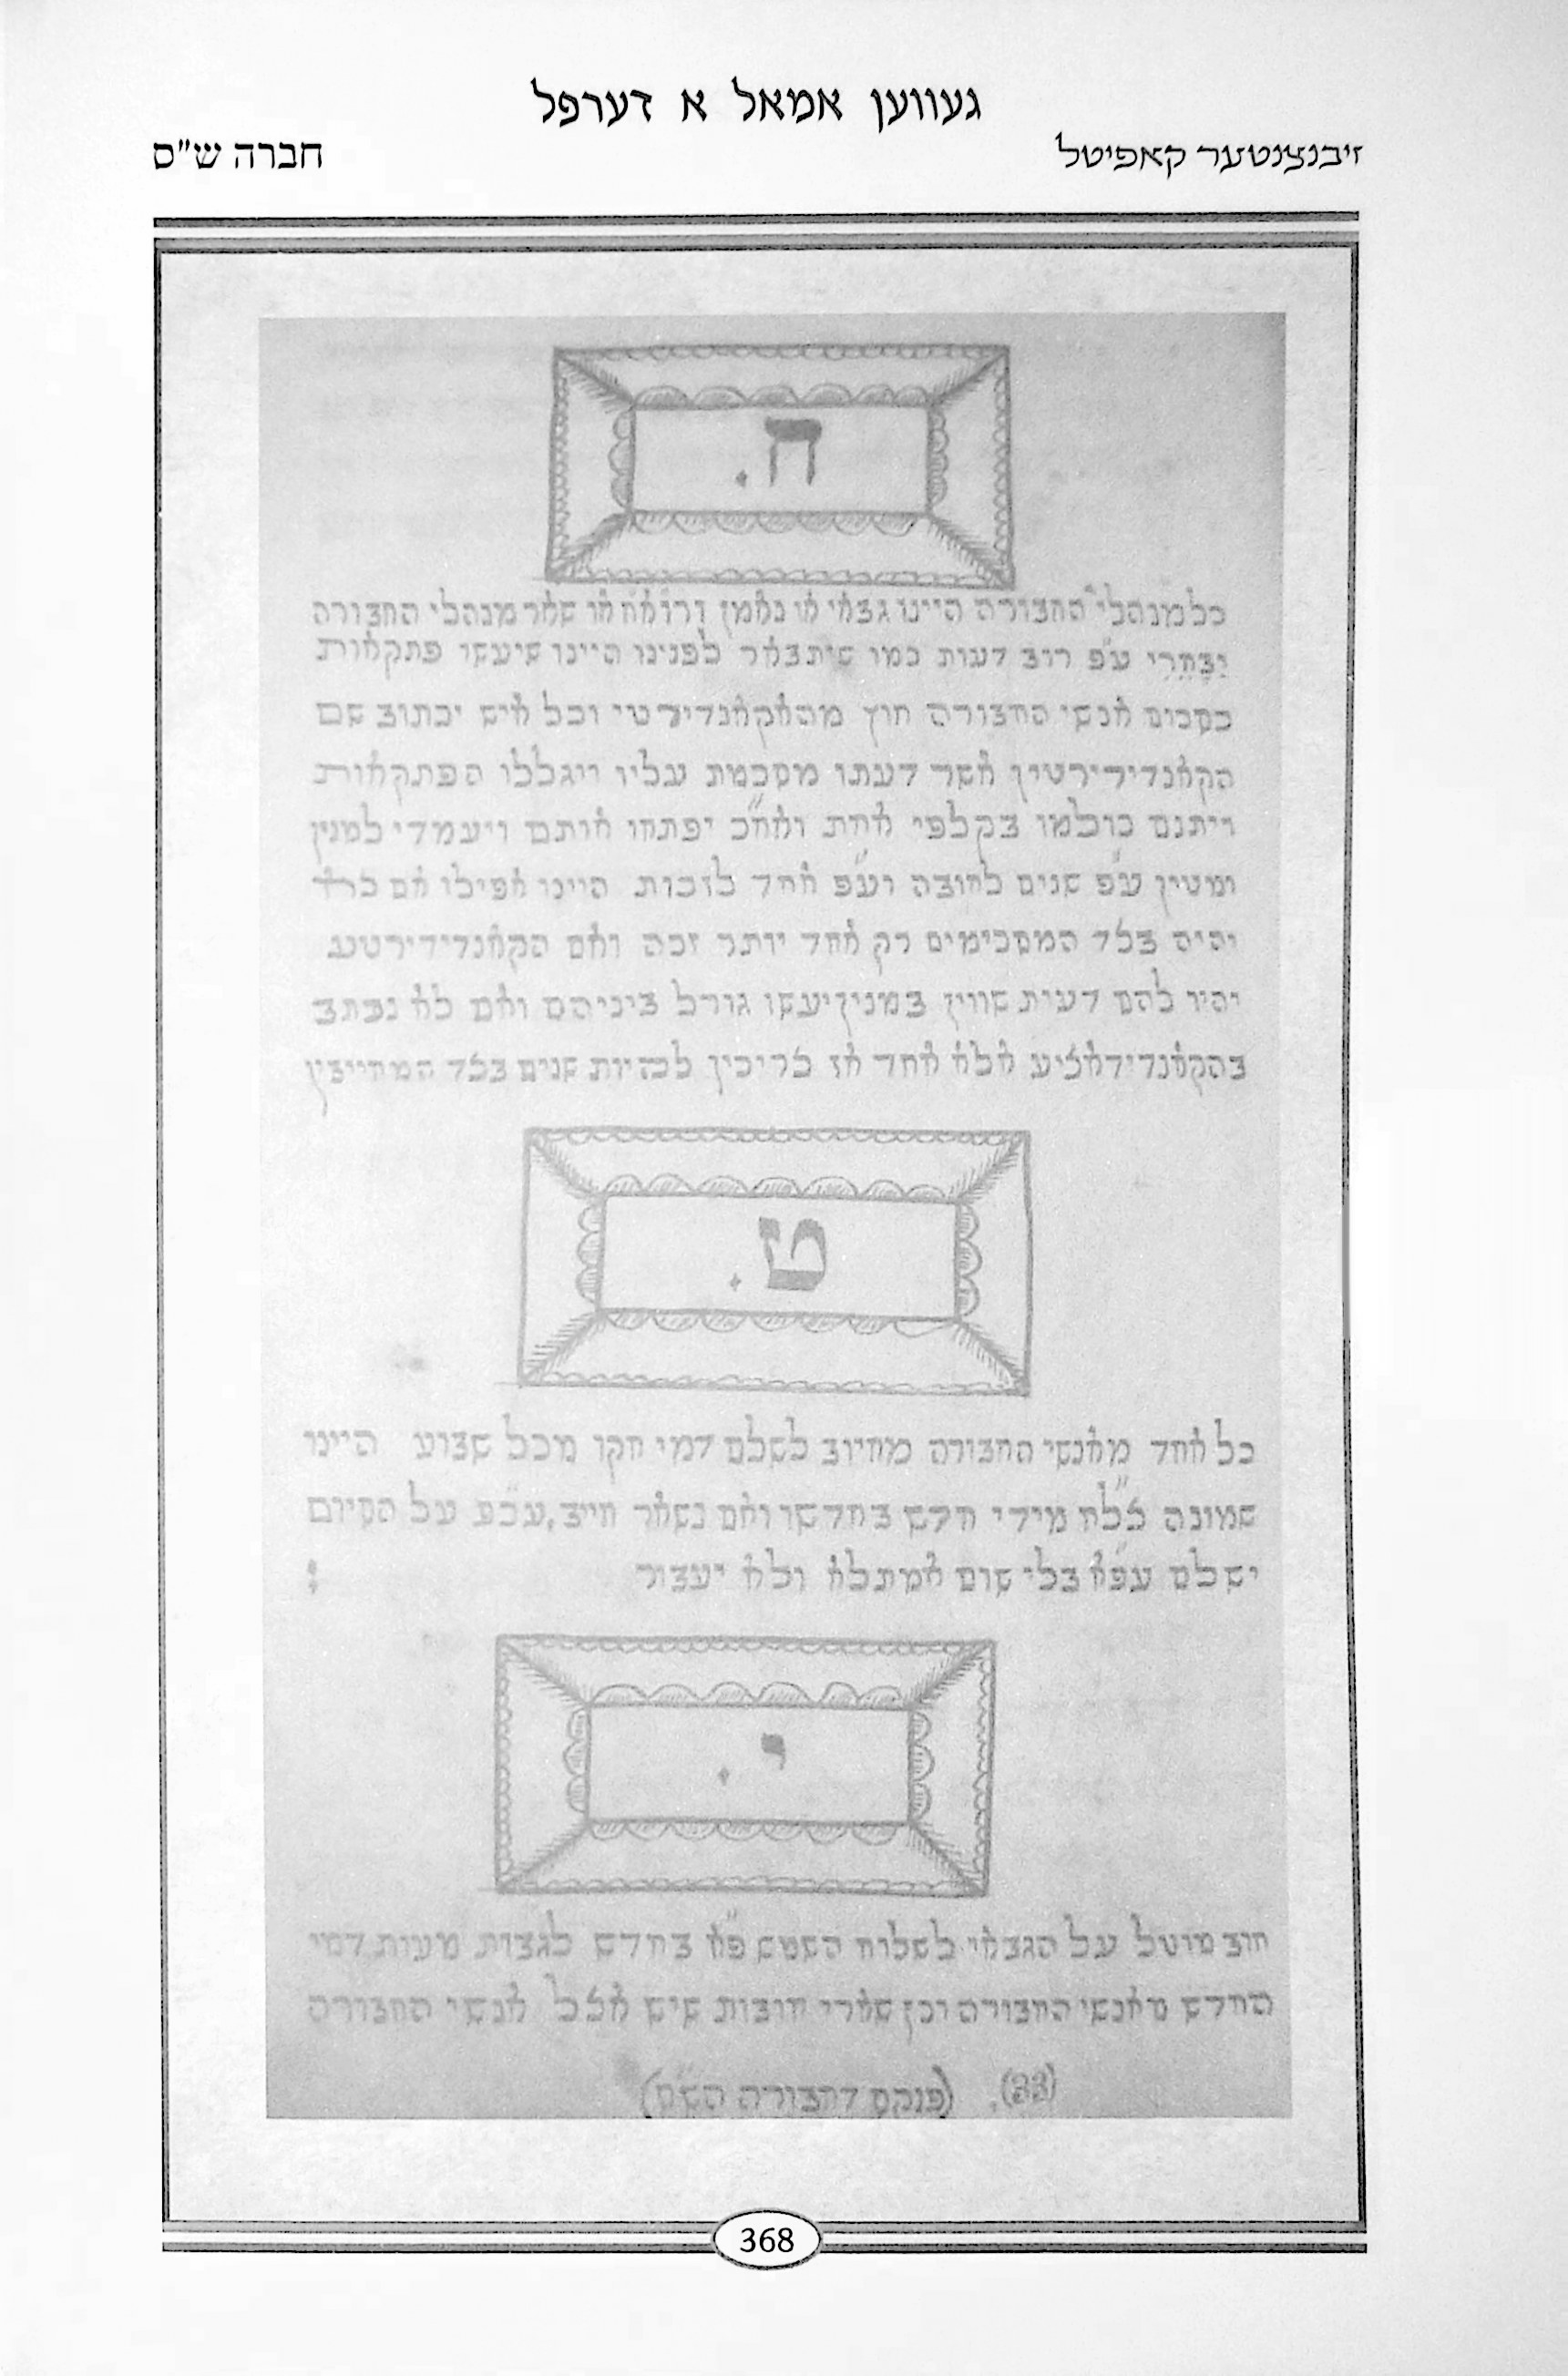 געווען אמאל א דערפל
זיבנצנטער קאפיטל
חברה ש"ס
ח.
כל מנהלי החבורה היינו גבאי או נאמן ורו"ח או שאר מנהלי החבורה
יבחרי ע"פ רוב דעות כמו שיתבאר לפנינו היינו שיעשו פתקאות
כסכום אנשי החבורה חוץ מהקאנדידירטי וכל איש יכתוב שם
הקאנדידירטין אשר דעתו מסכמת עליו ויגללו הפתקאות
ויתנם כולמו בקלפי אחת ואח"כ יפתחו אותם ויעמדי למנין
ומטין ע"פ שנים לחובה וע"פ אחד לזכות היינו אפילו אם
יהיה בצד המסכימים רק אחד יותר זכה ואם
יהיו להם דעות שווין במנין יעשו גורל ביניהם ואם לא נכתב
בהקאנדידאציע אלא אחד אז צריכין להיות שנים בצד המחייבין
ט.
כל אחד מאנשי החבורה מחיוב לשלם דמי חקו מכל שבוע היינו
שמונה צל"ח מידי חדש בחדשו ואם נשאר חייב, עכ"פ על הסיום
ישלם עפ"א בלי שום אמתלא ולא יעבור :
י.
חוב מוטל על הגבאי לשלוח השמש פ"א בחדש לגבות מעות דמי
החדש מאנשי החבורה וכן שארי חובות שיש אצל אנשי החבורה
(33). (פנקס דחבורה הש"ס)
368